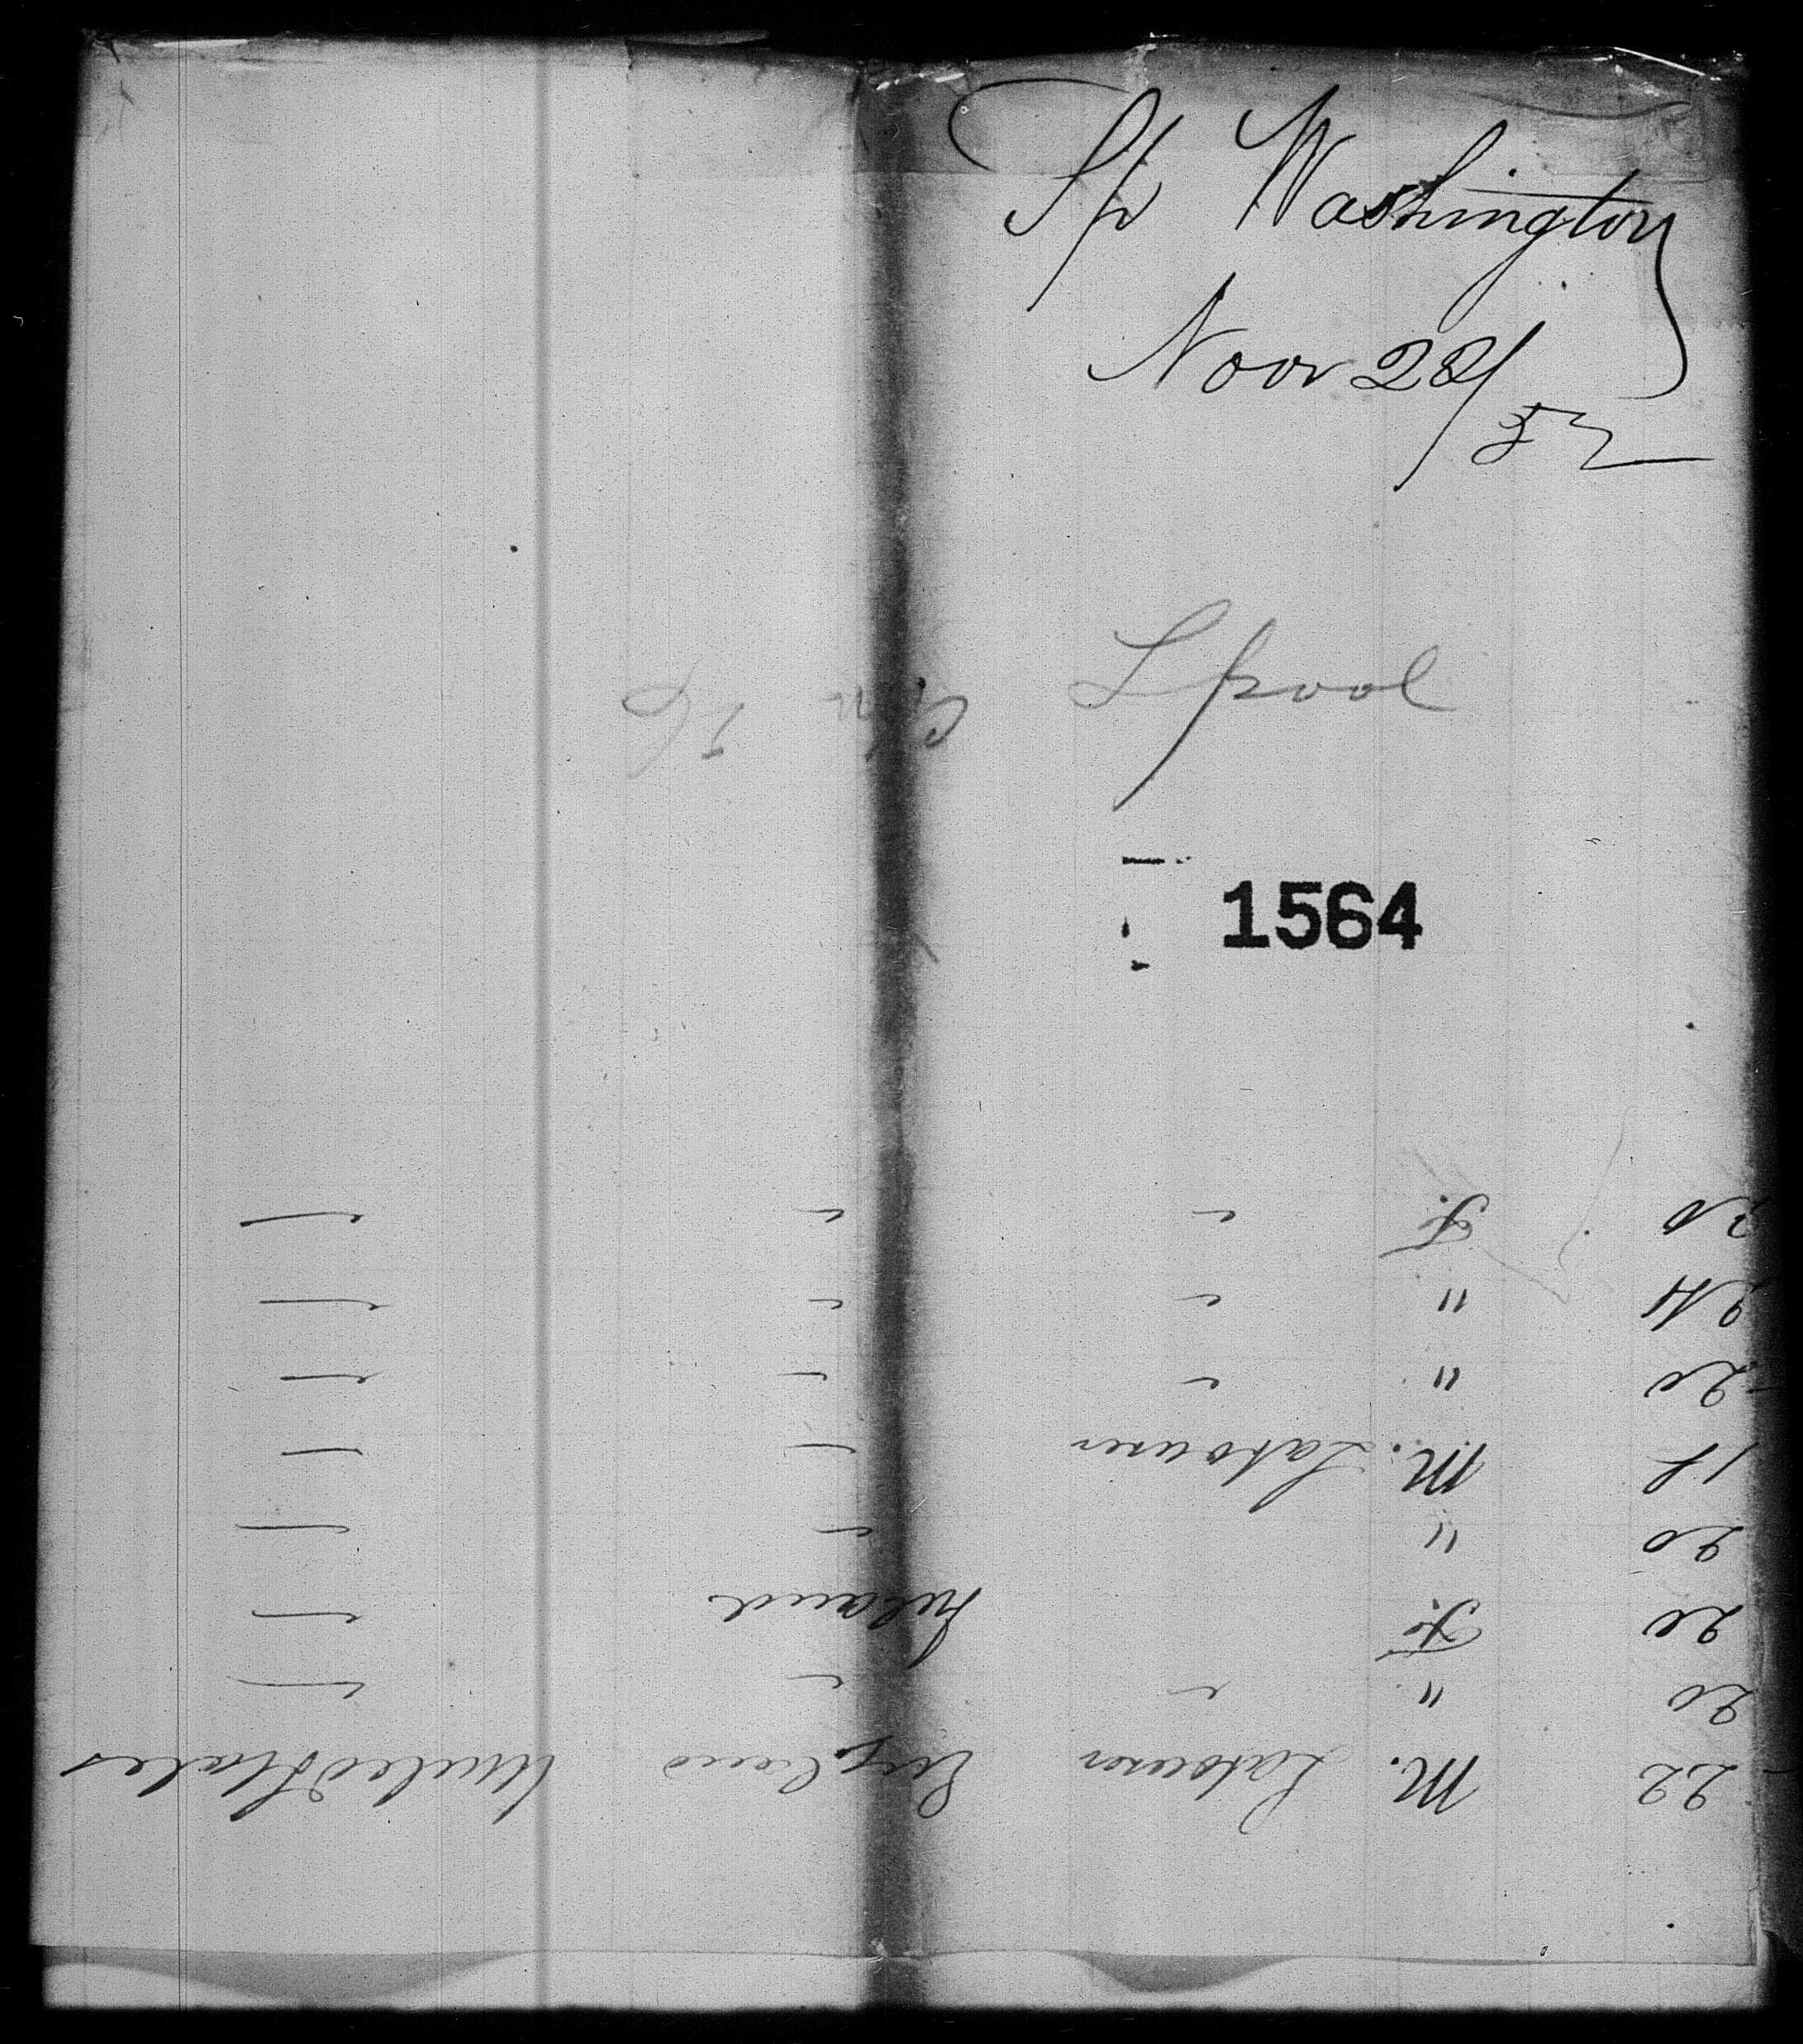 Sp Washington
Novr 22/
52
Lpool
1564
22 M. Labourer England United States
20 " "
20 F. Ireland
20 "
18 M. Labourer
20 "
24 "
F.